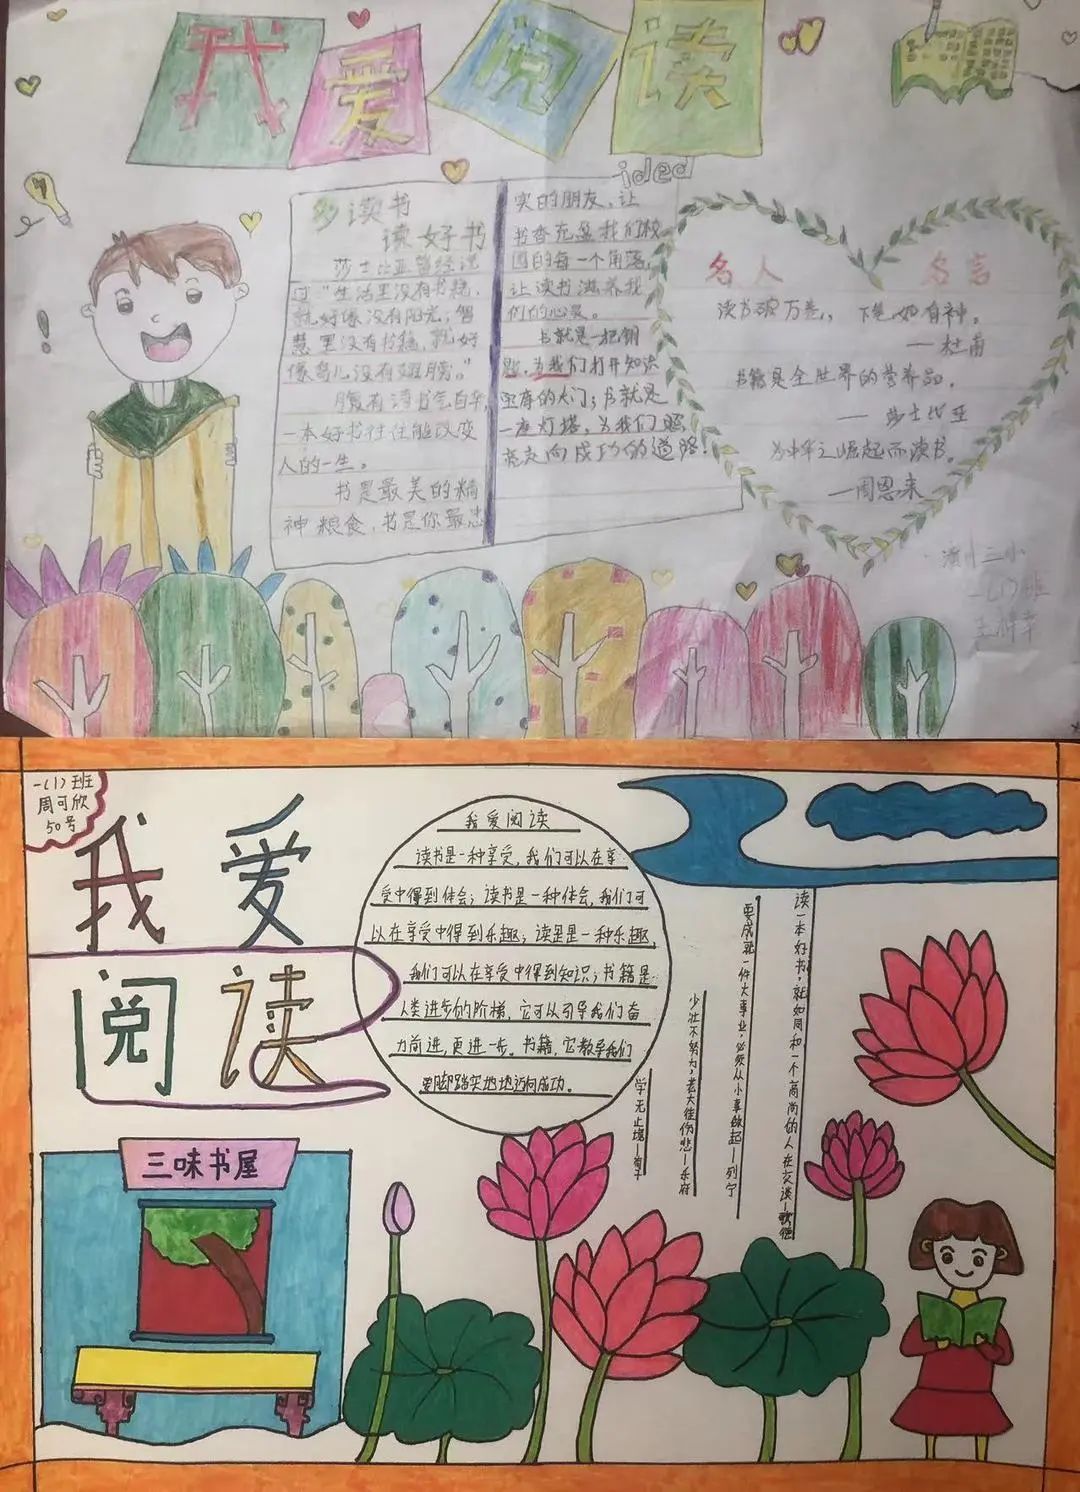 我爱阅读
idea
多读书
读好书
莎士比亚曾经说
过“生活里没有书籍，
就好像没有阳光；智
慧里没有书籍，就好
像鸟儿没有翅膀。”
腹有诗书气自华，
一本好书往往能改变
人的一生。
书是最美的精
神粮食，书是你最忠
实的朋友，让
书香充盈我们校
园的每一个角落，
让读书滋养我
们的心灵。
书就是一把钥
匙，为我们打开知识
宝库的大门；书就是
一座灯塔，为我们照
亮走向成功的道路！
名人 名言
读书破万卷，下笔如有神。
—杜甫
书籍是全世界的营养品。
— 莎士比亚
为中华之崛起而读书。
—周恩来
三小
一(1)班
一(1)班
周可欣
50号
我爱
阅读
我爱阅读
读书是一种享受，我们可以在享
受中得到体会；读书是一种体会，我们可
以在享受中得到乐趣；读是是一种乐趣，
我们可以在享受中得到知识；书籍是
人类进步的阶梯，它可以引导我们奋
力向前进，更进一步。书籍，它教导我们
要脚踏实地地迈向成功。
读一本好书，就如同和一个高尚的人在交谈—歌德
要成就一件大事业，必须从小事做起—列宁
少壮不努力，老大徒伤悲—乐府
学无止境—荀子
三味书屋